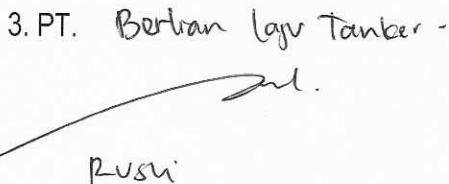 3. PT. Berlian Laju Tanker -
Rusli